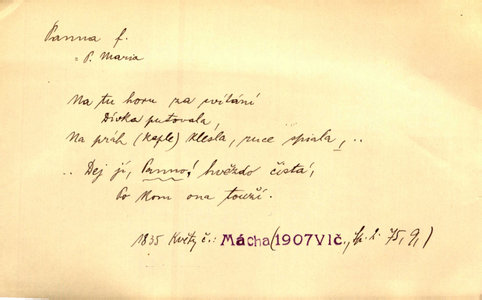 Panna f.
= P. Maria
Na tu horu za svítání
Dívka putovala,
Na práh (kaple) klesla, ruce spiala, ..
.. Dej jí, Panno! hvězdo čistá,
Po kom ona touží.
1835 Květy č.: Mácha (1907Vlč., Sp. I. 75, 9,)